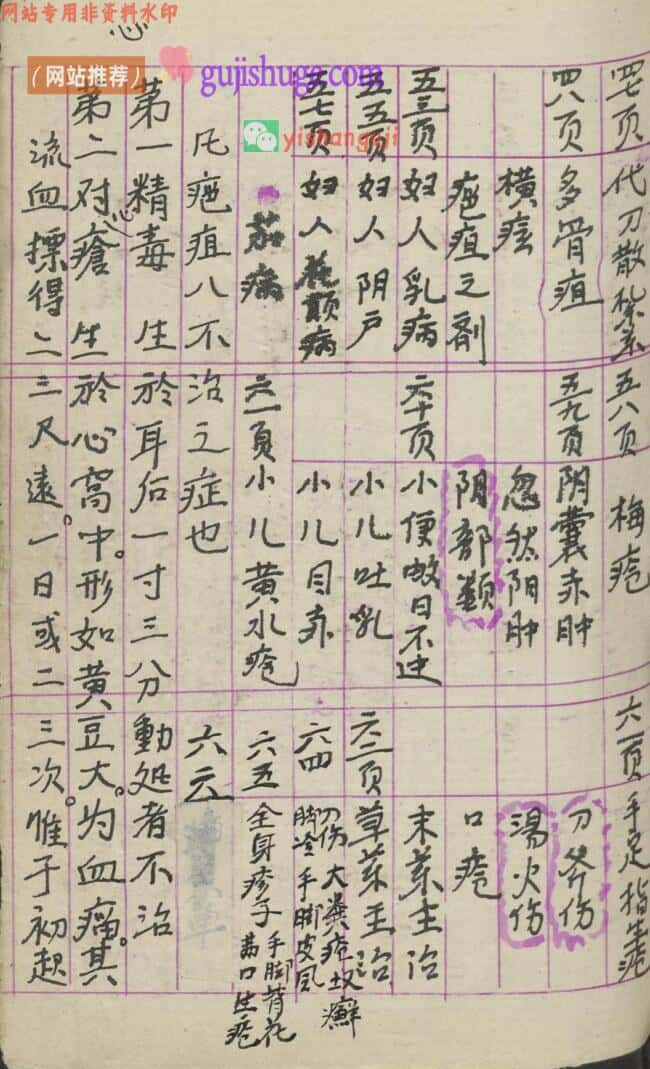 网站专用非资料水印
（网站推荐）
gujishuge.com
yishanguji
心
四七页 代刀散
四八页 多骨疽
横痃
疤疽之剂
五三页 妇人乳病
五五页 妇人阴户
五七页 妇人花颠病
茄病
五八页 梅疮
五九页 阴囊赤肿
忽然阴肿
阴部类
六十页 小便
小儿吐乳
小儿目赤
六一頁 小儿黄水疮
六一页 手足指生疮
刀斧伤
湯火伤
口疮
末葯主治
六二页 草葯主治
六四 刀伤 大粪疮 癣
脚冷 手脚皮風
六五 全身疹子 手脚背花
口生疮
凡疤疽八不治之症也
第一精毒 生於耳后一寸三分動処者不治
第二对心瘡 生於心窩中。形如黄豆大。为血瘤。其
流血摽得二三尺遠。一日或二三次。惟于初起